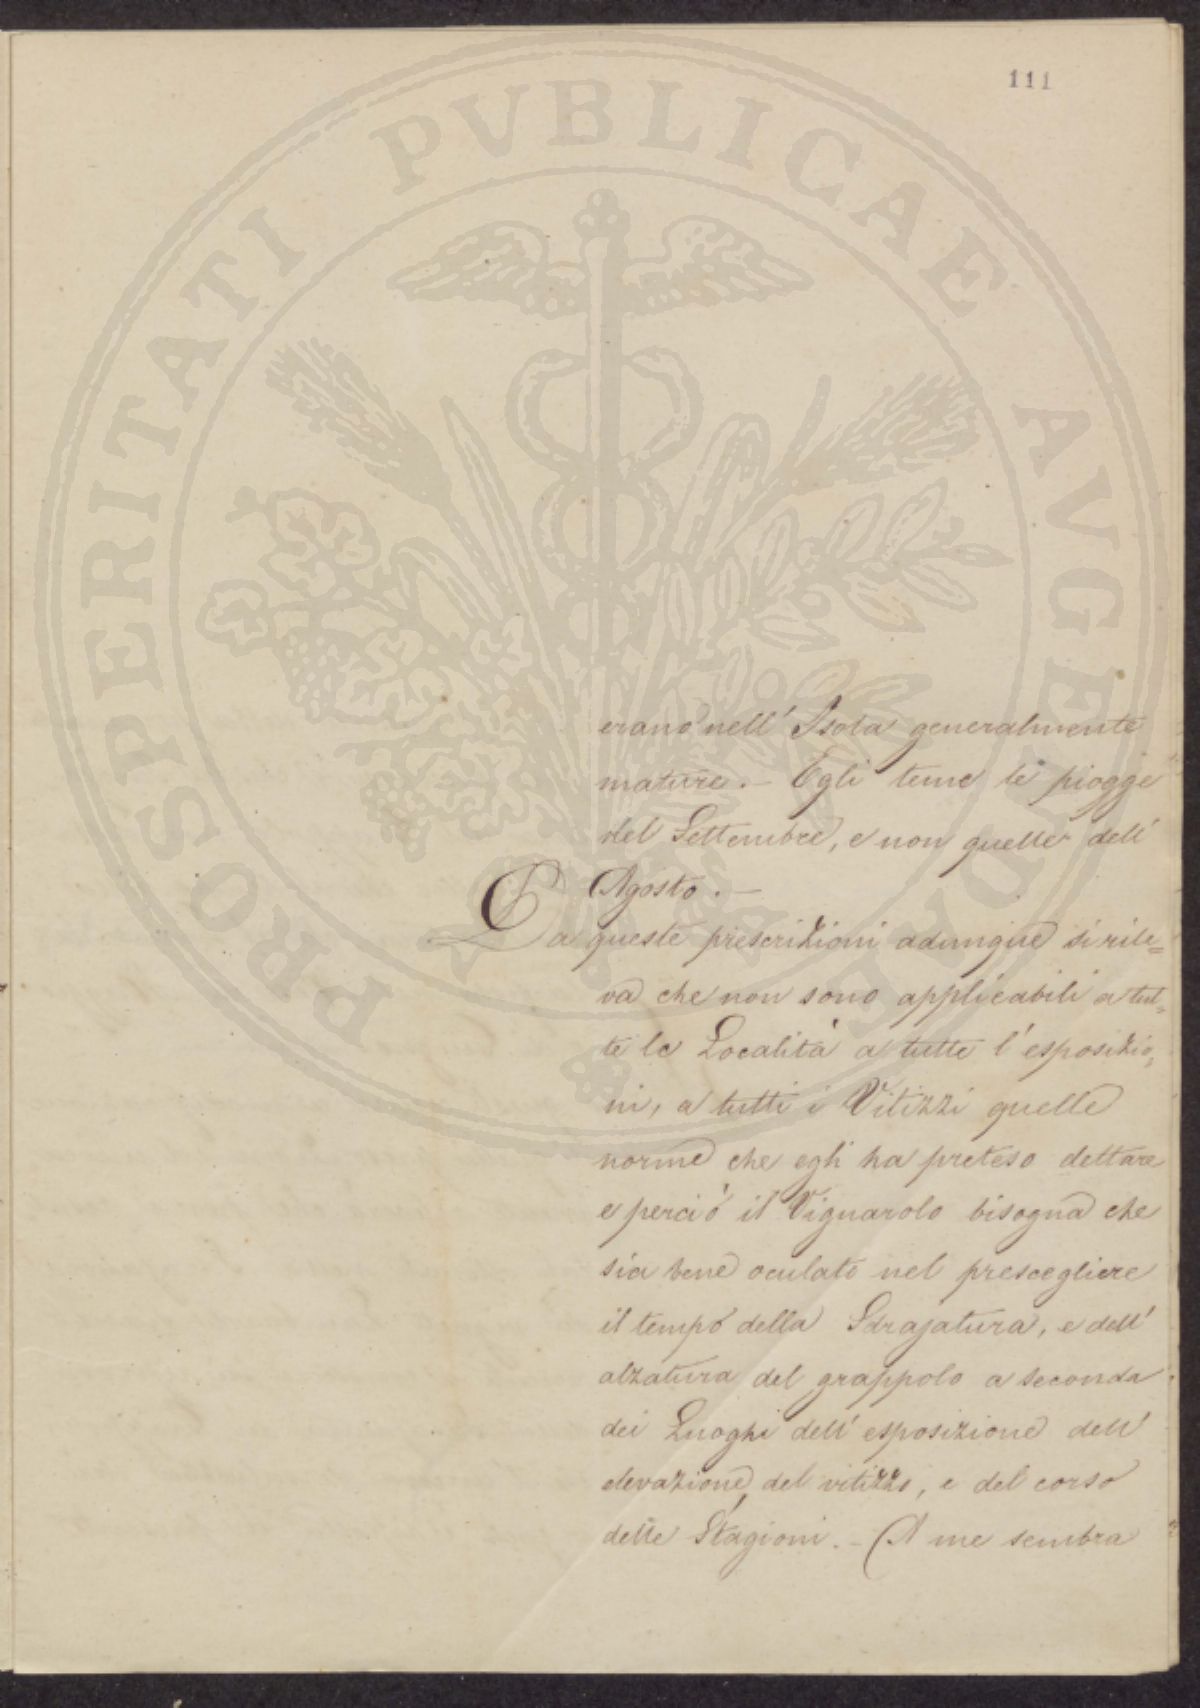 111
PROSPERITATI PVBLICAE AVGENDAE
erano nell' Isola generalmente
mature. — Egli teme le piogge
del Settembre, e non quelle dell'
Agosto. —
Da queste prescrizioni adunque si rile=
va che non sono applicabili a tut=
te le Località a tutte l'esposizio=
ni, a tutti i Vitizzi quelle
norme che egli ha preteso dettare
e perciò il Vignarolo bisogna che
sia bene oculato nel prescegliere
il tempo della Sdrajatura, e dell'
alzatura del grappolo a seconda
dei Luoghi dell' esposizione dell'
elevazione del vitizzo, e del corso
delle Stagioni. — A me sembra